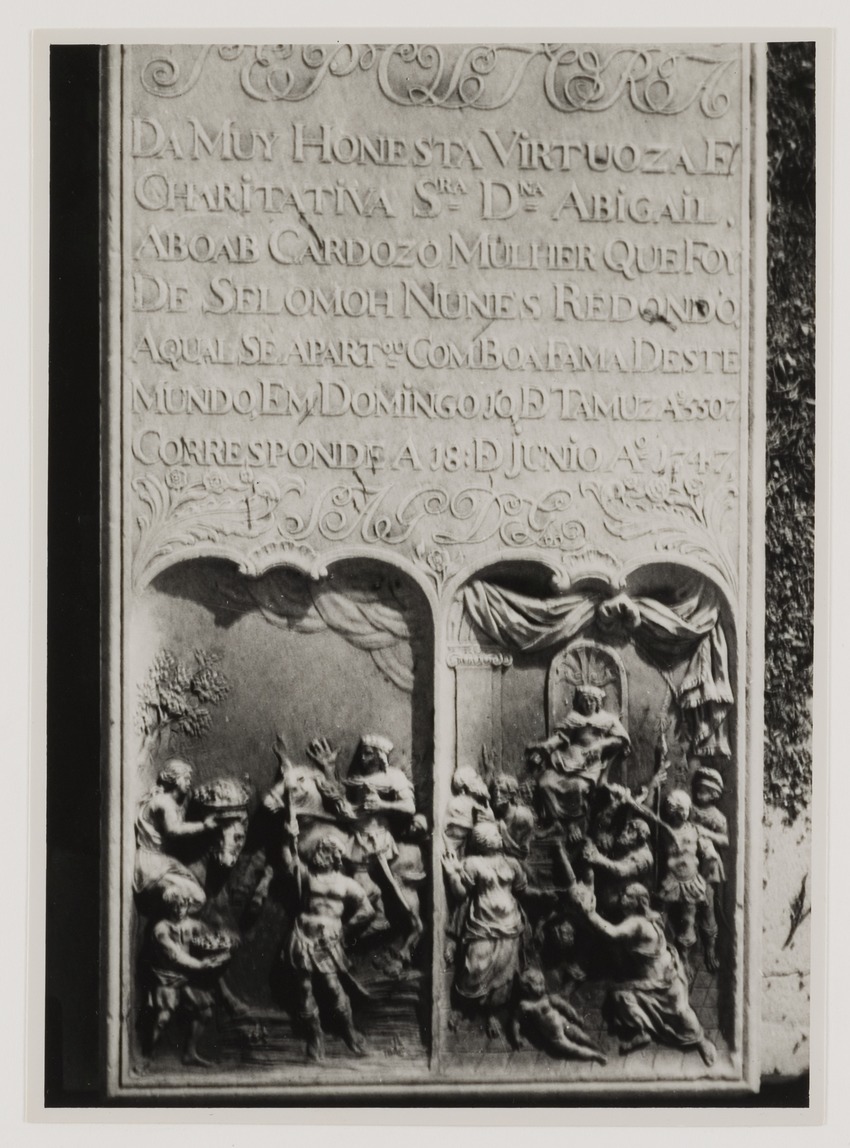 SEPULTURA
DA MUY HONESTA VIRTUOZA E
CHARITATIVA SRA DNA ABIGAIL,
ABOAB CARDOZO MULHER QUE FOY
DE SELOMOH NUNES REDONDO,
AQUAL SE APARTOU COM BOA FAMA DESTE
MUNDO, EM DOMINGO 10, D TAMUZ Ao 5507
CORRESPONDE A 18: D JUNIO Ao 1747,
SAGDG